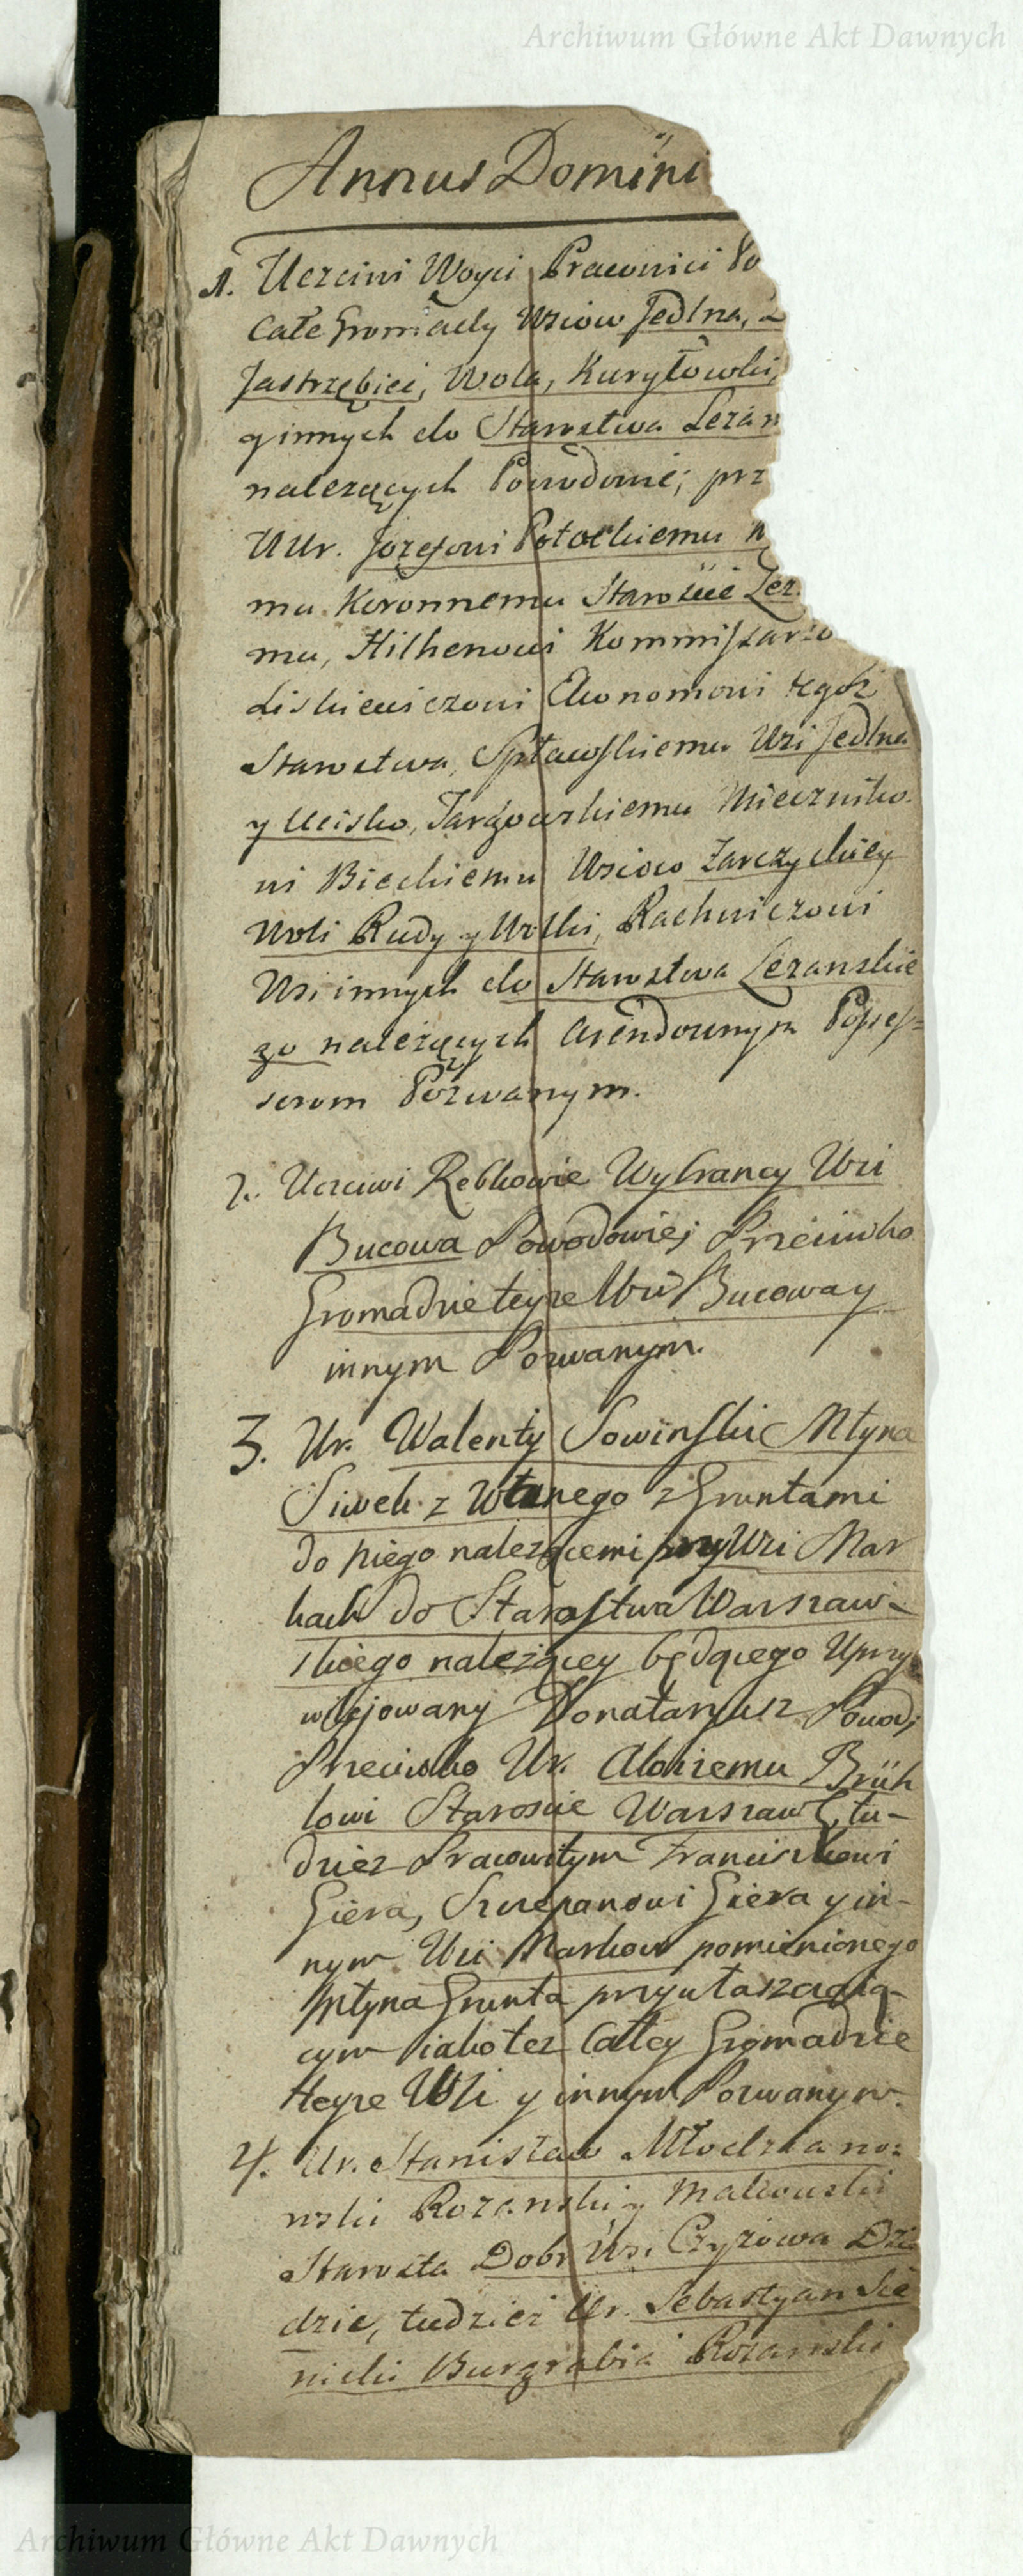 Archiwum Główne Akt Dawnych
Annus Domini
1. Uczciwi Woyci Pracowici Po
Całe Gromady Wsiow Jedlna,
Jastrzębiec, Wola, Kuryłowki,
y innych do Starostwa Lezan
nalezących Powodowie; prz
UUr. Jozefowi Potockiemu
mu Koronnemu Staroscie Lez.
mu, Hilhenowi Kommissarzo
Liskiewiczowi Ekonomowi tegoż
Starostwa, Spławskiemu Wsi Jedlna
y Ucisko, Targowskiemu Mieczniko-
wi Bieckiemu Wsiow Zarczychiey
Woli Rudy y Wolki, Rachwiczowi
Wsi innych do Starostwa Lezanskie
go nalezących Arendownym Posses=
sorom Pozwanym.
2. Uczciwi Rębkowie Wybrancy Wsi
Bucowa Powodowie; Przeciwko
Gromadzie teyze Wsi Bucowa y
innym Pozwanym.
3. Ur. Walenty Sowinski Młyna
Siwek z Wtanego z Gruntami
do niego nalezącemi przy Wsi Mar
kach do Starostwa Warszaw-
skiego należącey będącego Uprzy
wilejowany Donataryusz Powod;
Przeciwko Ur. Aloizemu Brüh
lowi Staroscie Warszaw. tu-
dziez Pracowitym Franciszkowi
Giera, Szczepanowi Giera y in-
nym Wsi Markow pomienionego
Młyna Grunta przywłaszczaią-
cym iako tez Całey Gromadzie
teyze Wsi y innym Pozwanym.
4. Ur. Stanisław Młodzia no=
wski Rozanski y Makowski
Starosta Dobr Wsi Czyzowa Dzie
dzic, tudzież Ur. Sebastyan Sie
nicki Burgrabia Rozanski
Archiwum Główne Akt Dawnych